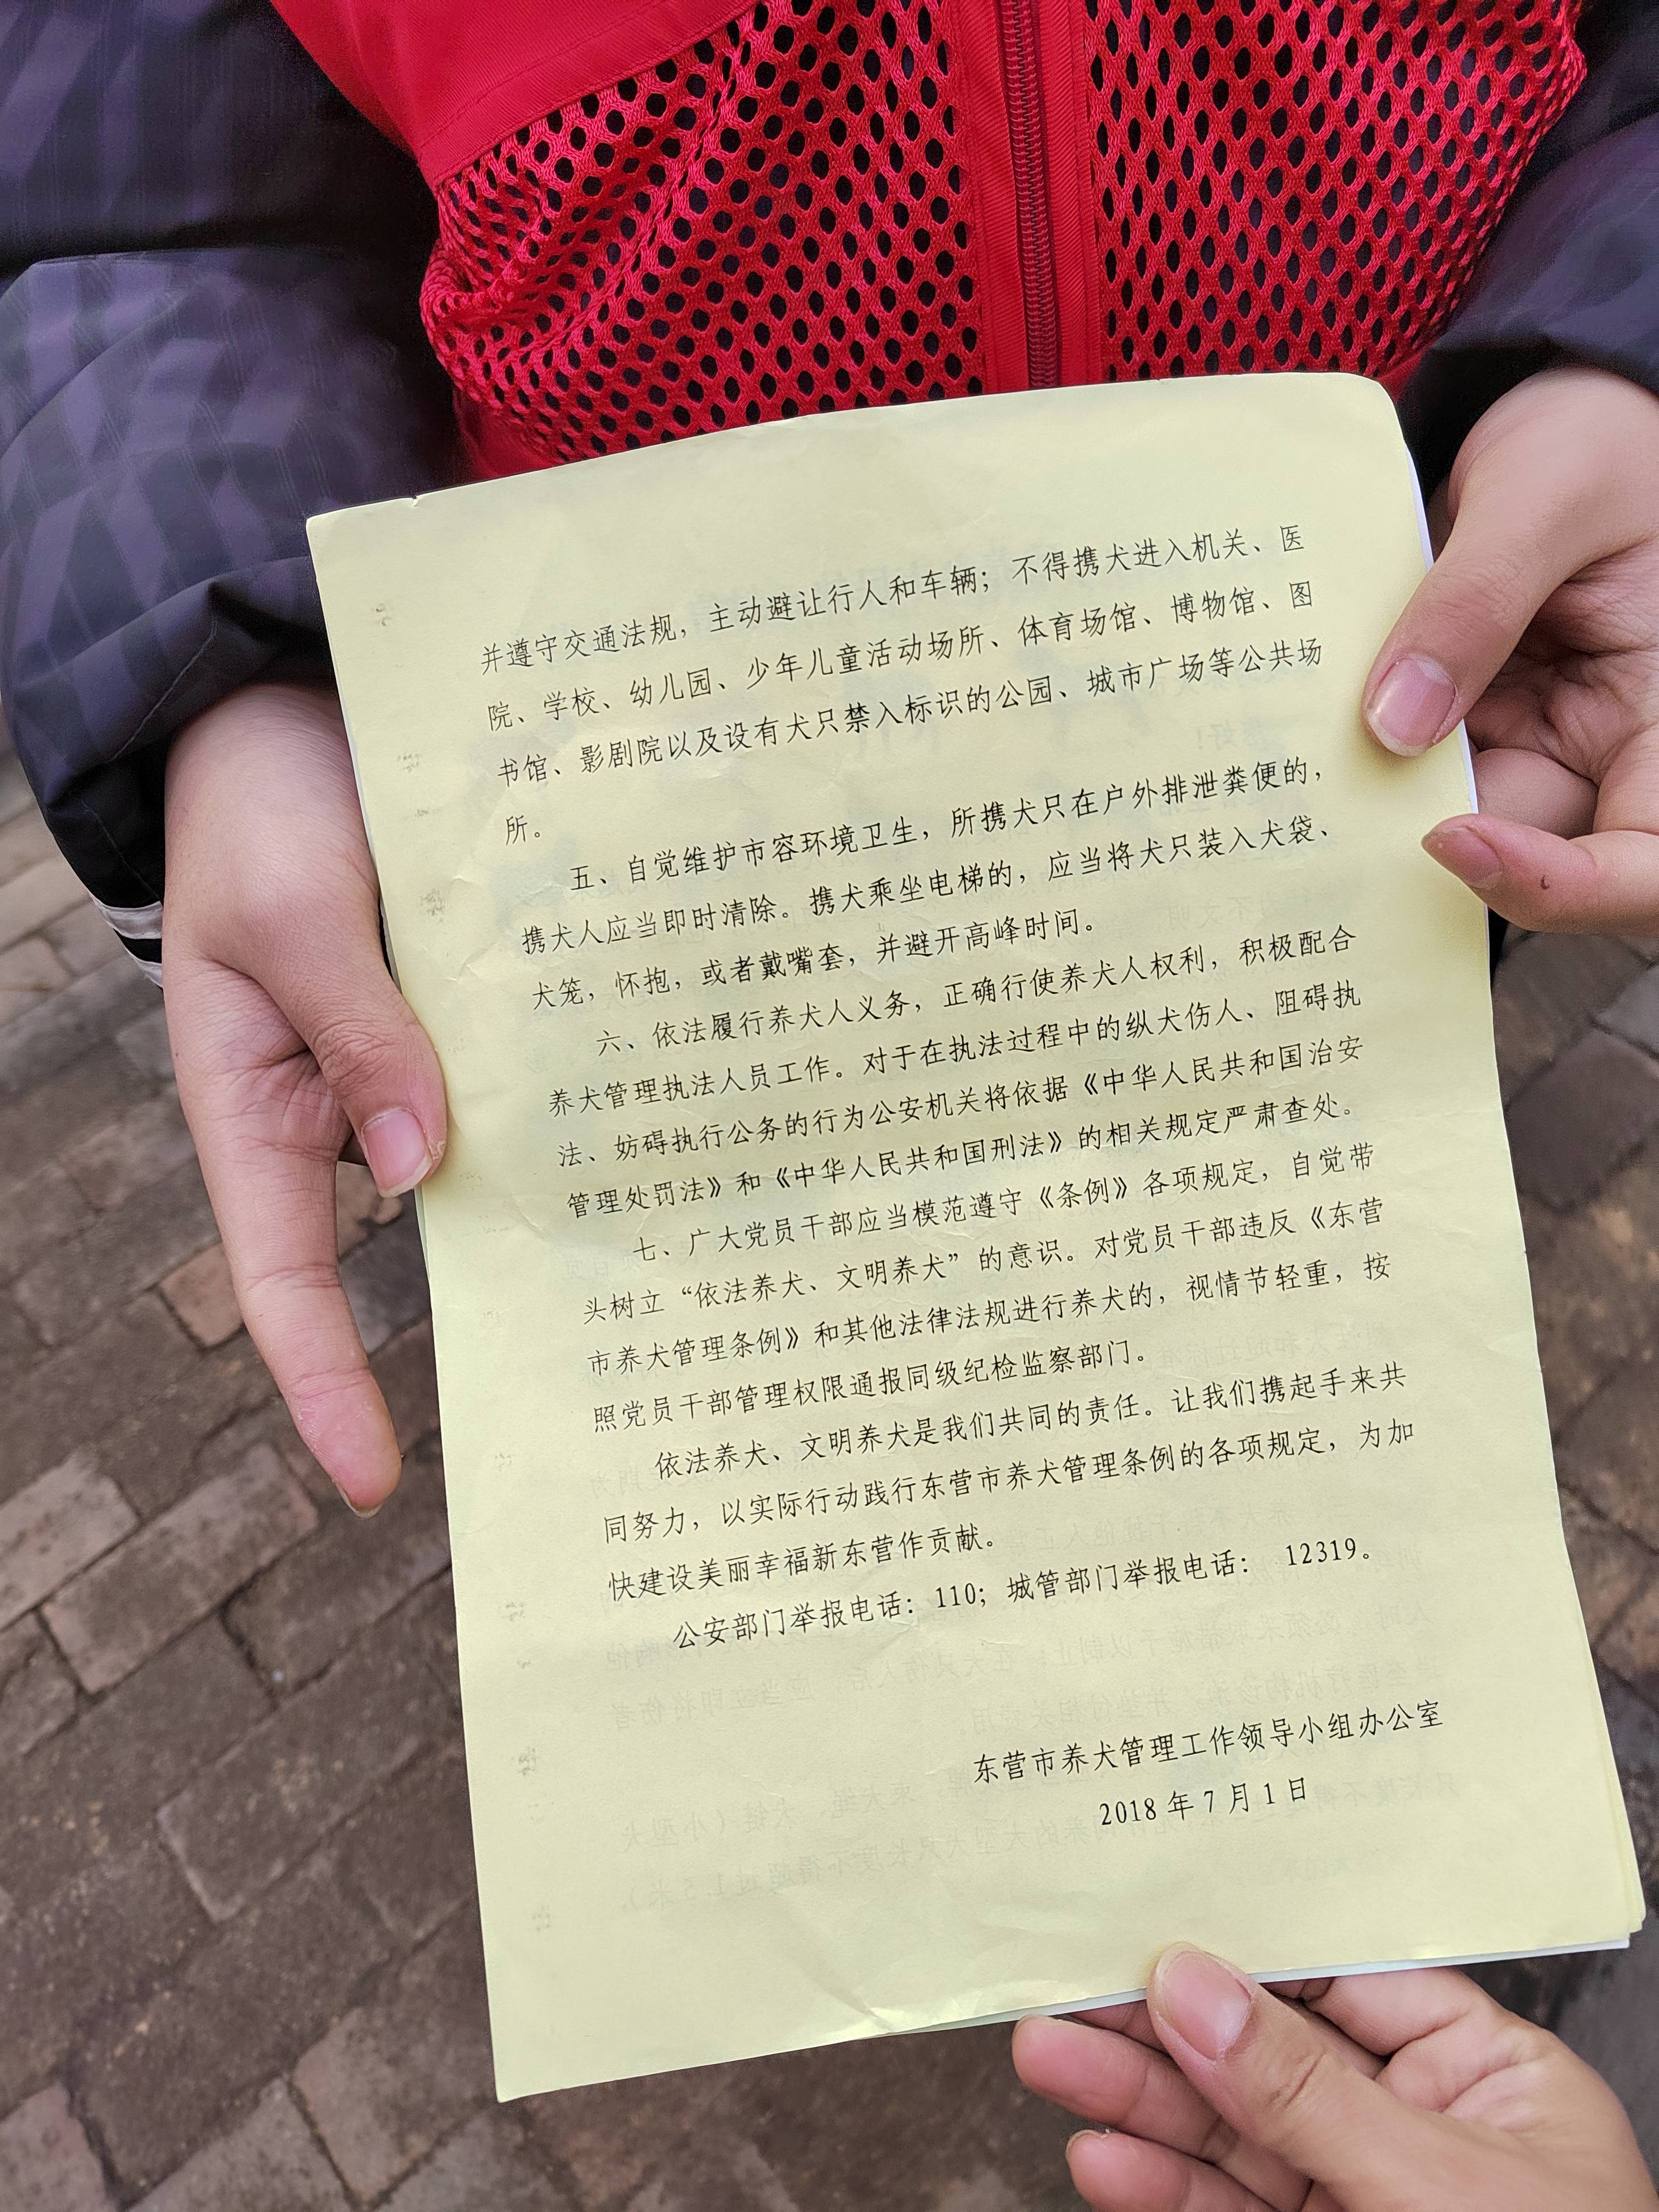 并遵守交通法规，主动避让行人和车辆；不得携犬进入机关、医
院、学校、幼儿园、少年儿童活动场所、体育场馆、博物馆、图
书馆、影剧院以及设有犬只禁入标识的公园、城市广场等公共场
所。
五、自觉维护市容环境卫生，所携犬只在户外排泄粪便的，
携犬人应当即时清除。携犬乘坐电梯的，应当将犬只装入犬袋、
犬笼，怀抱，或者戴嘴套，并避开高峰时间。
六、依法履行养犬人义务，正确行使养犬人权利，积极配合
养犬管理执法人员工作。对于在执法过程中的纵犬伤人、阻碍执
法、妨碍执行公务的行为公安机关将依据《中华人民共和国治安
管理处罚法》和《中华人民共和国刑法》的相关规定严肃查处。
七、广大党员干部应当模范遵守《条例》各项规定，自觉带
头树立“依法养犬、文明养犬”的意识。对党员干部违反《东营
市养犬管理条例》和其他法律法规进行养犬的，视情节轻重，按
照党员干部管理权限通报同级纪检监察部门。
依法养犬、文明养犬是我们共同的责任。让我们携起手来共
同努力，以实际行动践行东营市养犬管理条例的各项规定，为加
快建设美丽幸福新东营作贡献。
公安部门举报电话：110；城管部门举报电话： 12319。
东营市养犬管理工作领导小组办公室
2018 年 7 月 1 日